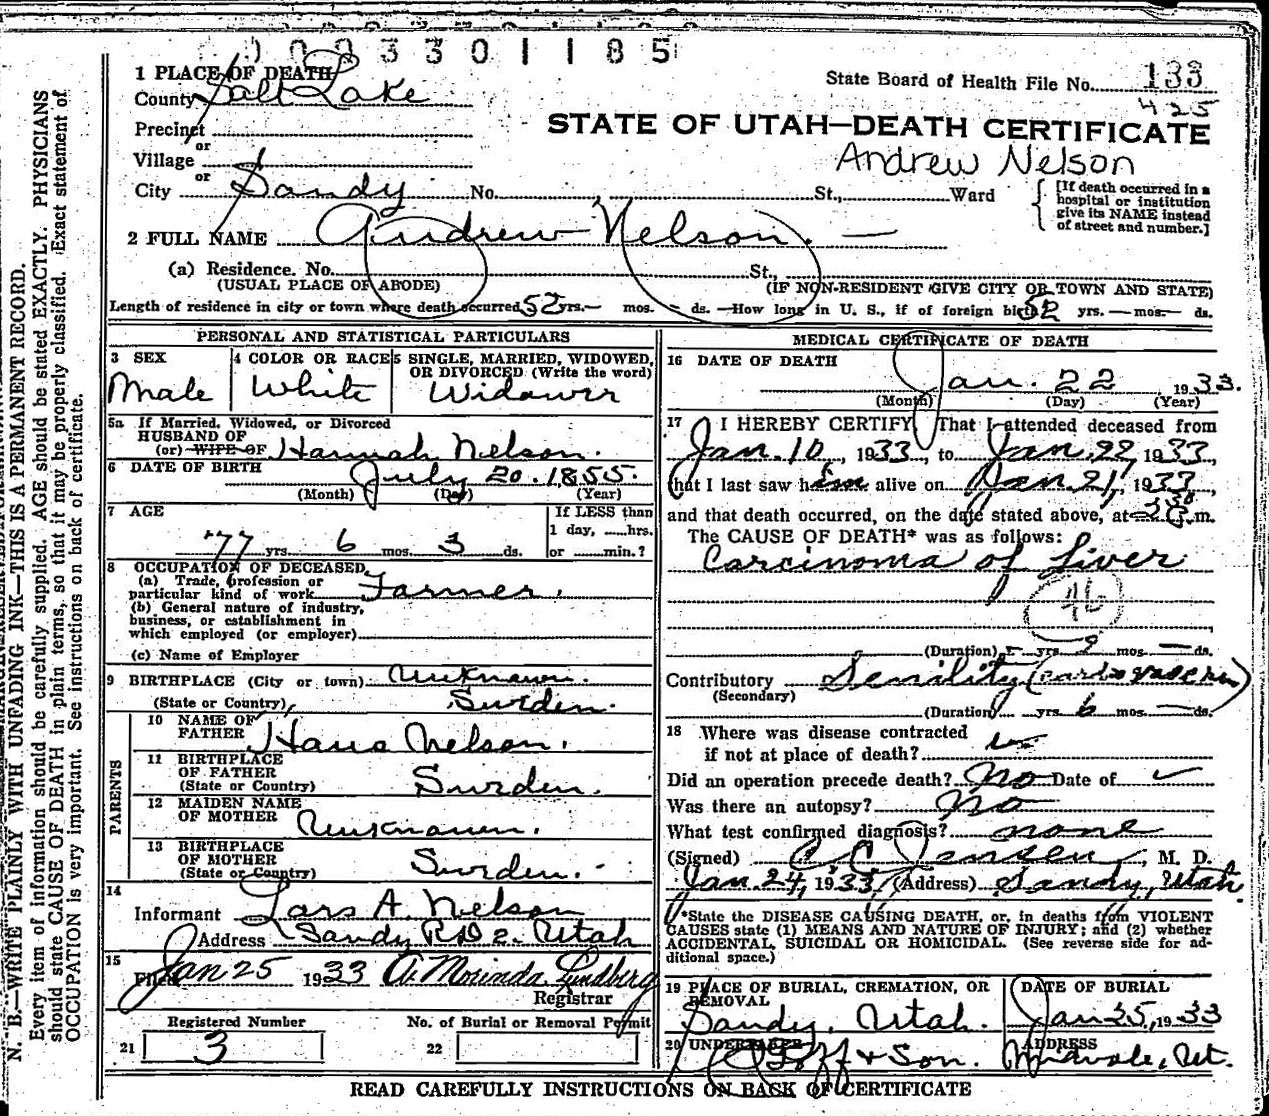 003301185
1 PLACE OF DEATH
County Salt Lake
State Board of Health File No. 133
425
Precinct
or
Village
or
City Sandy No. St., Ward
STATE OF UTAH—DEATH CERTIFICATE
Andrew Nelson
[If death occurred in a
hospital or institution
give its NAME instead
of street and number.]
2 FULL NAME Andrew Nelson.
(a) Residence. No. St.,
(USUAL PLACE OF ABODE) (IF NON-RESIDENT GIVE CITY OR TOWN AND STATE)
Length of residence in city or town where death occurred 52 yrs. — mos. — ds. — How long in U. S., if of foreign birth 52 yrs. — mos. — ds.
PERSONAL AND STATISTICAL PARTICULARS
3 SEX
Male
4 COLOR OR RACE
White
5 SINGLE, MARRIED, WIDOWED,
OR DIVORCED (Write the word)
Widower
5a If Married, Widowed, or Divorced
HUSBAND OF
(or) WIFE OF Hannah Nelson.
6 DATE OF BIRTH July 20. 1855.
(Month) (Day) (Year)
7 AGE
77 yrs. 6 mos. 3 ds.
If LESS than
1 day, ......hrs.
or ......min.?
8 OCCUPATION OF DECEASED
(a) Trade, profession or
particular kind of work Farmer.
(b) General nature of industry,
business, or establishment in
which employed (or employer)
(c) Name of Employer
9 BIRTHPLACE (City or town) Unknown.
(State or Country) Sweden.
PARENTS
10 NAME OF
FATHER Hans Nelson.
11 BIRTHPLACE
OF FATHER
(State or Country) Sweden.
12 MAIDEN NAME
OF MOTHER Unknown.
13 BIRTHPLACE
OF MOTHER
(State or Country) Sweden.
14
Informant Lars A. Nelson
Address Sandy RD 2. Utah
15
Filed Jan 25 1933 A. Morinda Lundberg
Registrar
Registered Number
21 3
No. of Burial or Removal Permit
22
MEDICAL CERTIFICATE OF DEATH
16 DATE OF DEATH
Jan. 22 1933.
(Month) (Day) (Year)
17 I HEREBY CERTIFY, That I attended deceased from
Jan. 10, 1933, to Jan. 22, 1933,
that I last saw him alive on Jan. 21, 1933,
and that death occurred, on the date stated above, at m.
The CAUSE OF DEATH* was as follows:
Carcinoma of Liver
46
(Duration) yrs. 9 mos. — ds.
Contributory Senility
(Secondary)
(Duration) yrs. 6 mos. — ds.
18 Where was disease contracted
if not at place of death?
Did an operation precede death? No Date of
Was there an autopsy? No
What test confirmed diagnosis? none
(Signed) C C Jensen, M. D.
Jan. 24, 1933 (Address) Sandy, Utah.
*State the DISEASE CAUSING DEATH, or, in deaths from VIOLENT
CAUSES state (1) MEANS AND NATURE OF INJURY; and (2) whether
ACCIDENTAL, SUICIDAL OR HOMICIDAL. (See reverse side for ad-
ditional space.)
19 PLACE OF BURIAL, CREMATION, OR
REMOVAL
Sandy, Utah.
DATE OF BURIAL
Jan 25, 1933
20 UNDERTAKER
Goff & Son.
ADDRESS
Midvale, Ut.
READ CAREFULLY INSTRUCTIONS ON BACK OF CERTIFICATE
N. B.—WRITE PLAINLY WITH UNFADING INK—THIS IS A PERMANENT RECORD.
Every item of information should be carefully supplied. AGE should be stated EXACTLY. PHYSICIANS
should state CAUSE OF DEATH in plain terms, so that it may be properly classified. Exact statement of
OCCUPATION is very important. See instructions on back of certificate.